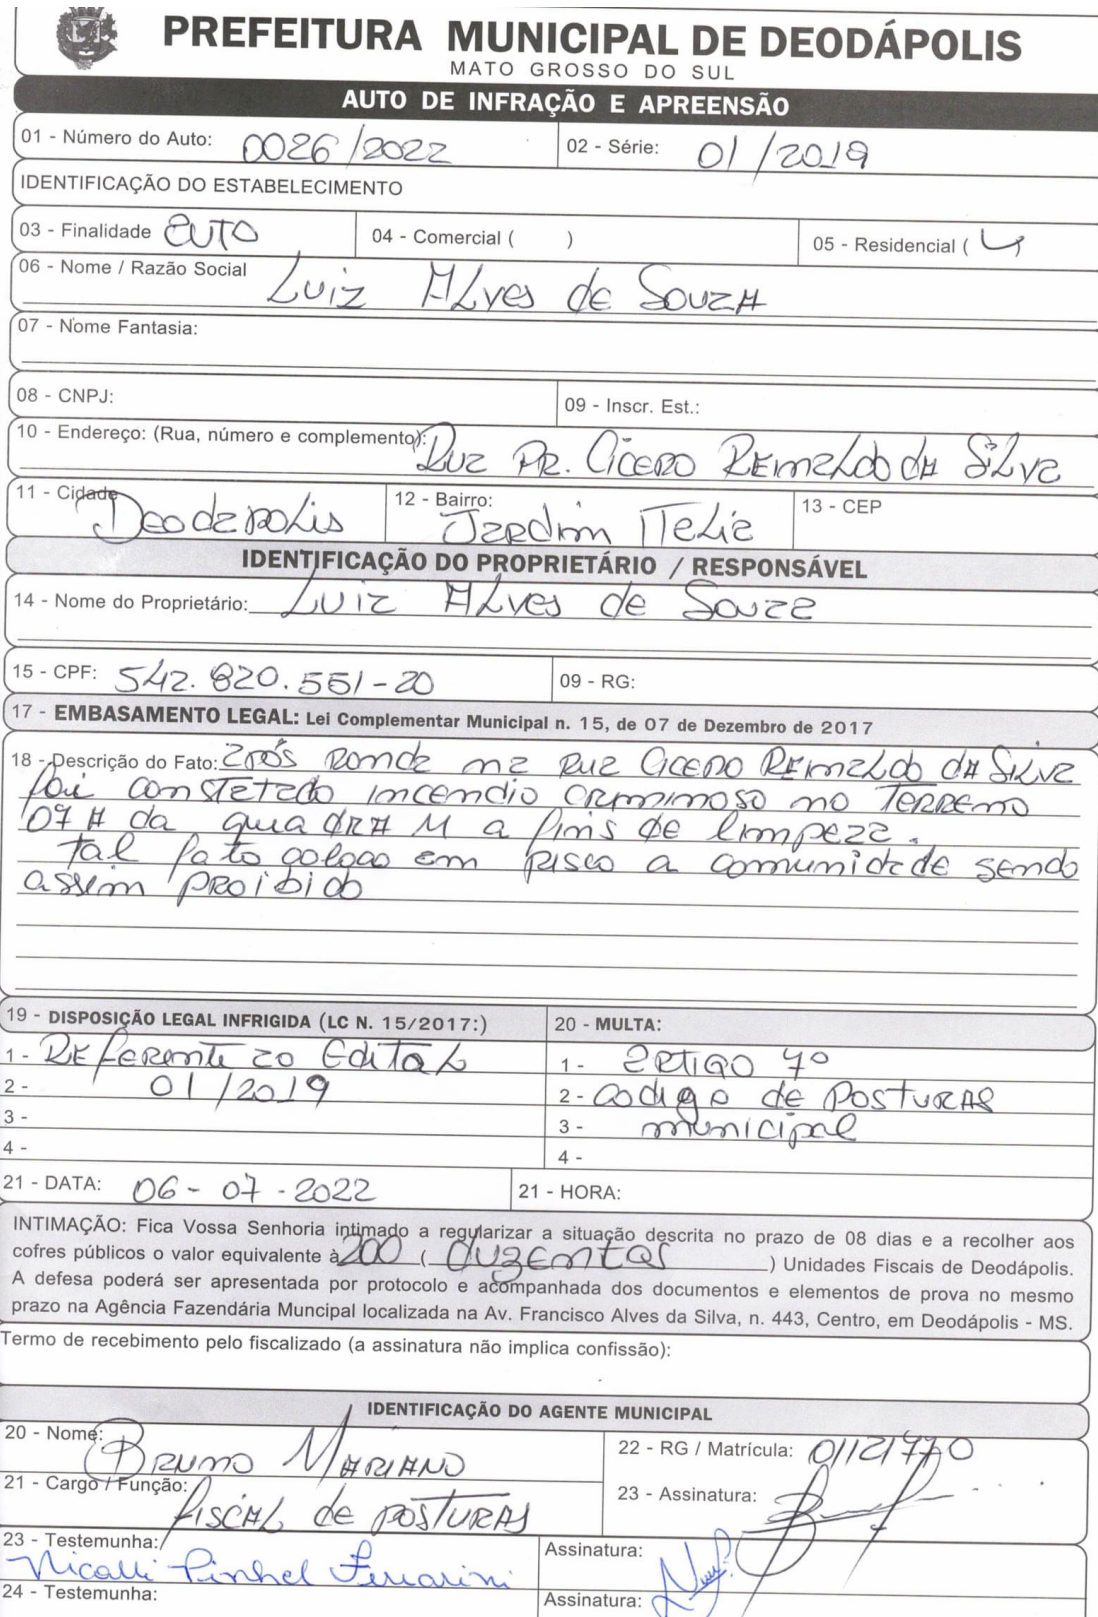 PREFEITURA MUNICIPAL DE DEODÁPOLIS
MATO GROSSO DO SUL
AUTO DE INFRAÇÃO E APREENSÃO
01 - Número do Auto: 0026/2022 02 - Série: 01/2019
IDENTIFICAÇÃO DO ESTABELECIMENTO
03 - Finalidade auto 04 - Comercial ( ) 05 - Residencial ( )
06 - Nome / Razão Social Luiz Alves de Souza
07 - Nome Fantasia:
08 - CNPJ: 09 - Inscr. Est.:
10 - Endereço: (Rua, número e complemento): Rua PR. Cicero Reinaldo da Silva
11 - Cidade Deodapolis 12 - Bairro: Jardim Italia 13 - CEP
IDENTIFICAÇÃO DO PROPRIETÁRIO / RESPONSÁVEL
14 - Nome do Proprietário: Luiz Alves de Souza
15 - CPF: 542.820.551-20 09 - RG:
17 - EMBASAMENTO LEGAL: Lei Complementar Municipal n. 15, de 07 de Dezembro de 2017
18 - Descrição do Fato: após ronda na rua Cicero Reinaldo da Silva
foi constatado incendio criminoso no terreno
07 A da quadra M a fins de limpeza.
tal fato coloca em risco a comunidade sendo
assim proibido
19 - DISPOSIÇÃO LEGAL INFRIGIDA (LC N. 15/2017:) 20 - MULTA:
1 - Referente ao Edital 1 - artigo 7º
2 - 01/2019 2 - codigo de Posturas
3 - 3 - municipal
4 - 4 -
21 - DATA: 06-07-2022 21 - HORA:
INTIMAÇÃO: Fica Vossa Senhoria intimado a regularizar a situação descrita no prazo de 08 dias e a recolher aos
cofres públicos o valor equivalente à 200 ( duzentas ) Unidades Fiscais de Deodápolis.
A defesa poderá ser apresentada por protocolo e acompanhada dos documentos e elementos de prova no mesmo
prazo na Agência Fazendária Muncipal localizada na Av. Francisco Alves da Silva, n. 443, Centro, em Deodápolis - MS.
Termo de recebimento pelo fiscalizado (a assinatura não implica confissão):
IDENTIFICAÇÃO DO AGENTE MUNICIPAL
20 - Nome: Bruno Mariano 22 - RG / Matrícula: 01121770
21 - Cargo / Função: fiscal de posturas 23 - Assinatura:
23 - Testemunha: Nicalli Pinhel Ferrarini Assinatura:
24 - Testemunha: Assinatura: